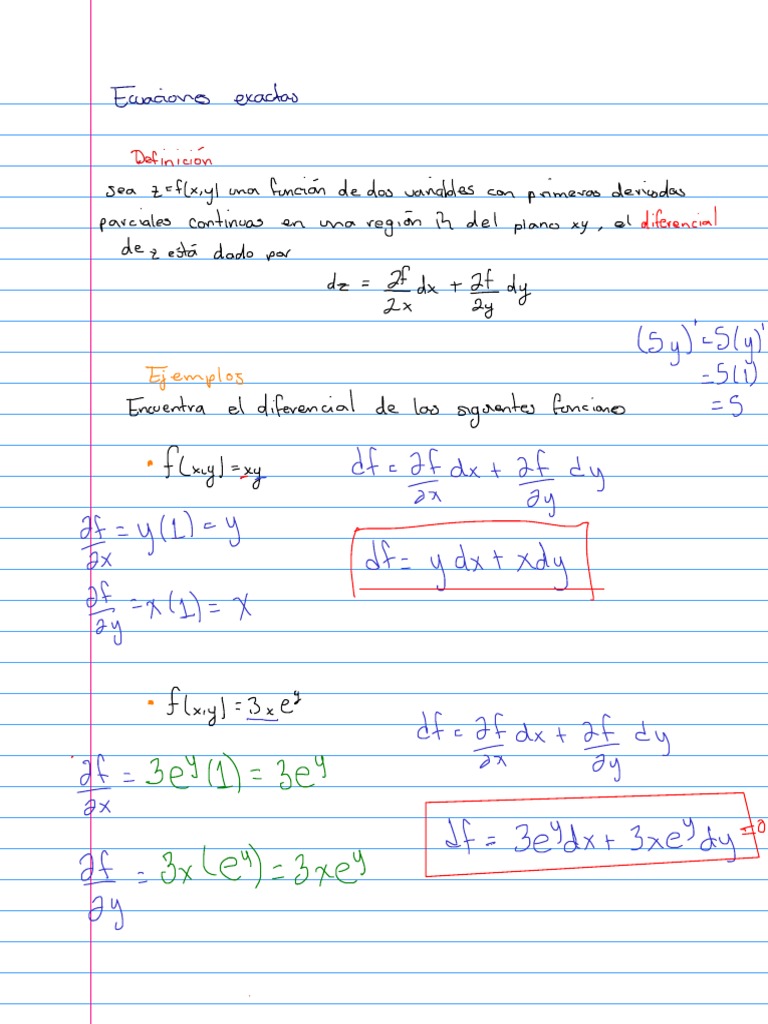 Ecuaciones exactas
Definición
sea z=f(x,y) una función de dos variables con primeras derivadas
parciales continuas en una región R del plano xy, el diferencial
de z está dado por
dz = ∂f/∂x dx + ∂f/∂y dy
(5y)' = 5(y)'
= 5(1)
= 5
Ejemplos
Encuentra el diferencial de las siguientes funciones
• f(x,y) = xy
df = ∂f/∂x dx + ∂f/∂y dy
∂f/∂x = y(1) = y
df = y dx + x dy
∂f/∂y = x(1) = x
• f(x,y) = 3xe^y
df = ∂f/∂x dx + ∂f/∂y dy
∂f/∂x = 3e^y(1) = 3e^y
df = 3e^y dx + 3xe^y dy = 0
∂f/∂y = 3x(e^y) = 3xe^y